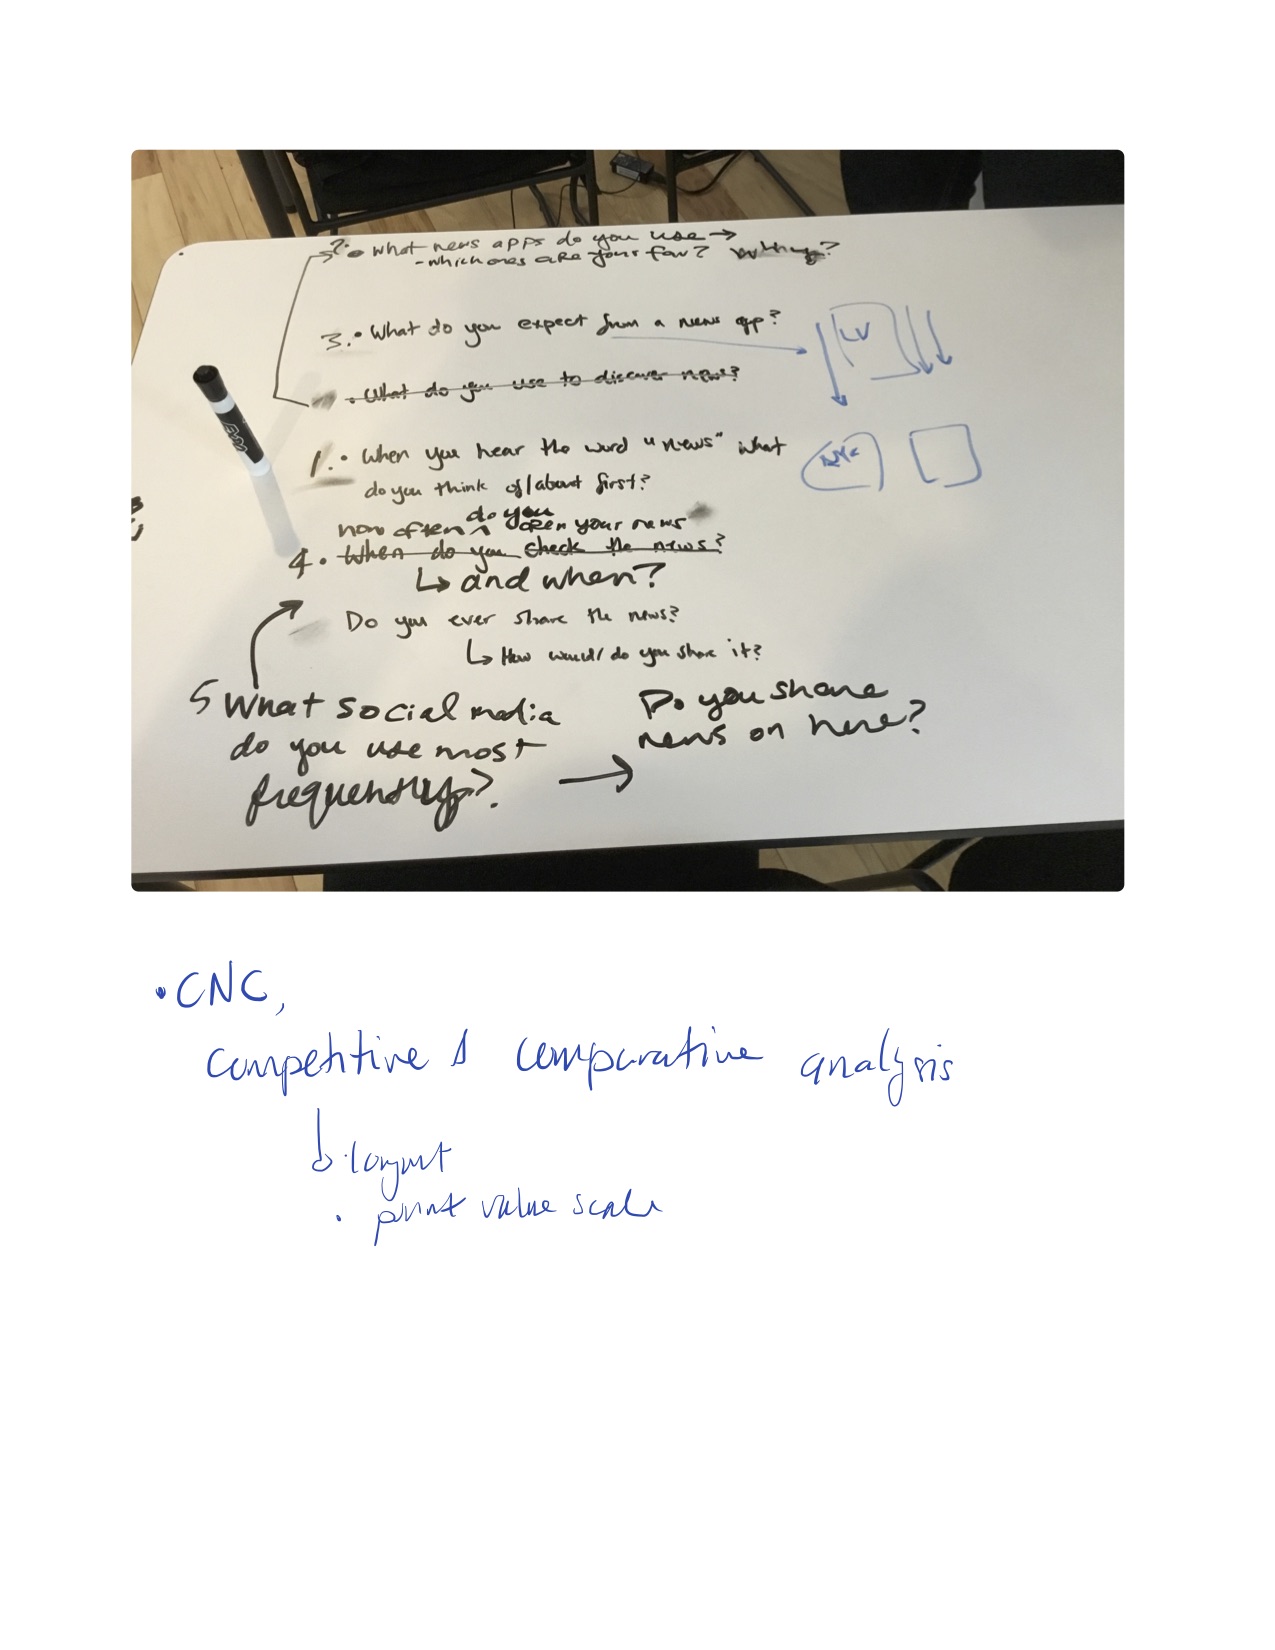 2. • What news apps do you use →
- which ones are your fav? Why?
3. • What do you expect from a news app?
LV
• What do you use to discover news?
1. • When you hear the word "news" what
do you think of/about first?
how often do you open your news
4. • When do you check the news?
↳ and when?
Do you ever share the news?
↳ How would/do you share it?
5 What social media
do you use most
frequently?
→ Do you share
news on here?
• CNC,
competitive & comparative analysis
• layout
• point value scale